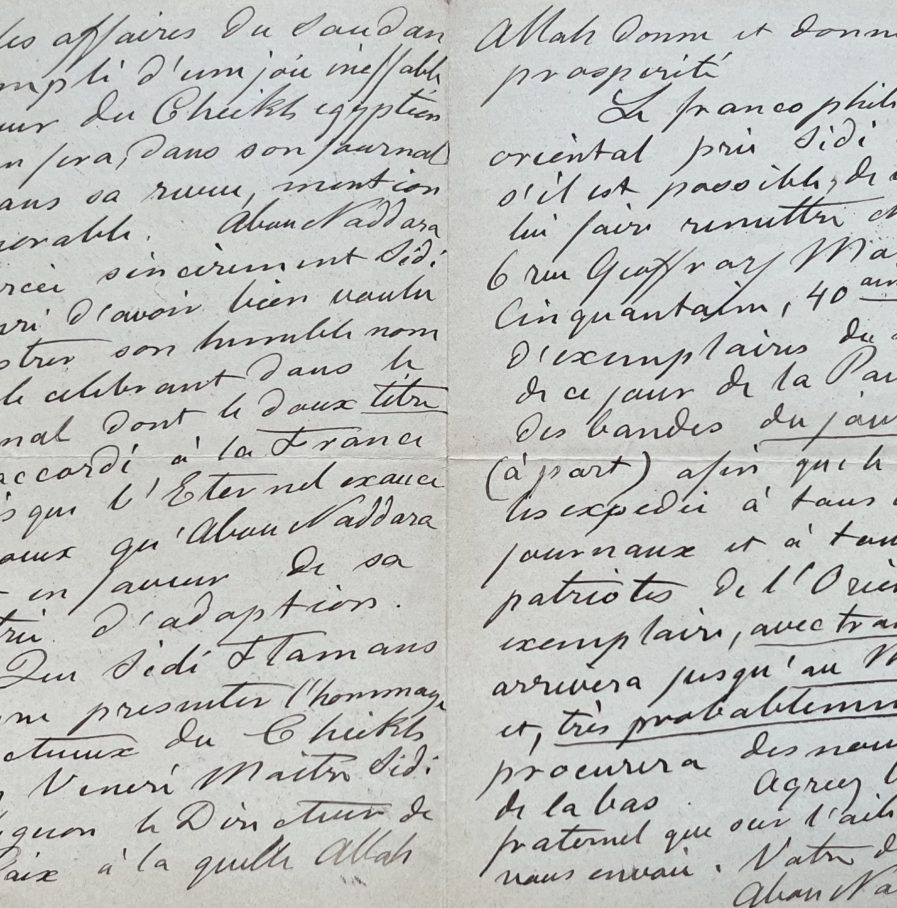 les affaires du Soudan
mpli d'une joie ineffable
eur du Cheikh égyptien
en fera, dans son journal
ans sa revue, mention
norable. Abou Naddara
rcie sincèrement Sidi
nri d'avoir bien voulu
strer son humble nom
le célébrant dans le
nal dont le doux titre
accordé à la France
ès que l'Eternel exauce
oeux qu'Abou Naddara
t en faveur de sa
trie d'adoption.
Que Sidi Flamans
ne présenter l'hommage
ctueux du Cheikh
Vénéré Maître Sidi
guon le Directeur de
Paix à la quelle Allah
Allah donne et donne
prospérité
Le francophil
oriental prie Sidi
s'il est possible, de
lui faire remettre
6 rue Geoffroy Ma
Cinquantaine, 40
d'exemplaires du
de ce jour de la Pa
des bandes du jou
(à part) afin que le
les expédie à tous
journaux et à tou
patriotes de l'Orie
exemplaire, avec tra
arrivera jusqu'au M
et, très probablemen
procurera des nou
de la bas. Agréez l
fraternel que sur l'aile
vous envoie. Votre d
Abou Na